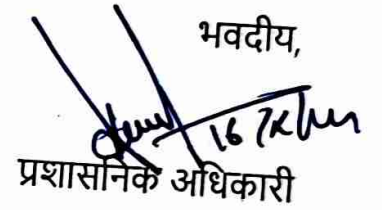 भवदीय,
प्रशासनिक अधिकारी